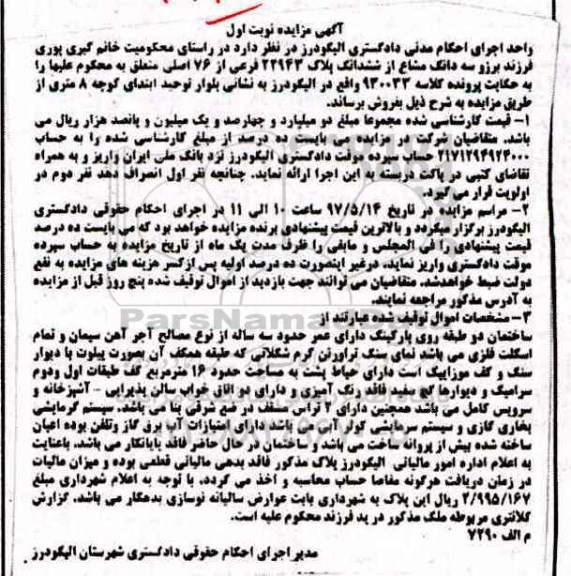 آگهی مزایده نوبت اول
واحد اجرای احکام مدنی دادگستری الیگودرز در نظر دارد در راستای محکومیت خانم کبری پوری
فرزند برزو سه دانگ مشاع از ششدانگ پلاک ۲۲۹۴۳ فرعی از ۷۶ اصلی متعلق به محکوم علیها را
به حکایت پرونده کلاسه ۹۳۰۰۳۳ واقع در الیگودرز به نشانی بلوار توحید ابتدای کوچه ۸ متری از
طریق مزایده به شرح ذیل بفروش برساند.
۱- قیمت کارشناسی شده مجموعا مبلغ دو میلیارد و چهارصد و یک میلیون و پانصد هزار ریال می
باشد. متقاضیان شرکت در مزایده می بایست ده درصد از مبلغ کارشناسی شده را به حساب
۲۱۷۱۲۹۴۹۲۴۰۰۰ حساب سپرده موقت دادگستری الیگودرز نزد بانک ملی ایران واریز و به همراه
تقاضای کتبی در پاکت دربسته به این اجرا ارائه نماید. چنانچه نفر اول انصراف دهد نفر دوم در
اولویت قرار می گیرد.
۲- مراسم مزایده در تاریخ ۹۷/۵/۱۴ ساعت ۱۰ الی ۱۱ در اجرای احکام حقوقی دادگستری
الیگودرز برگزار میگردد و بالاترین قیمت پیشنهادی برنده مزایده خواهد بود که می بایست ده درصد
قیمت پیشنهادی را فی المجلس و مابقی را ظرف مدت یک ماه از تاریخ مزایده به حساب سپرده
موقت دادگستری واریز نماید. درغیر اینصورت ده درصد اولیه پس ازکسر هزینه های مزایده به نفع
دولت ضبط خواهدشد. متقاضیان می توانند جهت بازدید از اموال توقیف شده پنج روز قبل از مزایده
به آدرس مذکور مراجعه نمایند.
۳- مشخصات اموال توقیف شده عبارتند از
ساختمان دو طبقه روی پارکینگ دارای عمر حدود سه ساله از نوع مصالح آجر آهن سیمان و تمام
اسکلت فلزی می باشد نمای سنگ تراورتن کرم شکلاتی که طبقه همکف آن بصورت پیلوت با دیوار
سنگ و کف موزاییک است دارای حیاط پشت به مساحت حدود ۱۶ مترمربع کف طبقات اول ودوم
سرامیک و دیوارها گچ سفید فاقد رنگ آمیزی و دارای دو اتاق خواب سالن پذیرایی - آشپزخانه و
سرویس کامل می باشد همچنین دارای ۲ تراس مسقف در ضع شرقی بنا می باشد. سیستم گرمایشی
بخاری گازی و سیستم سرمایشی کولر آبی می باشد دارای امتیازات آب برق گاز وتلفن بوده اعیان
ساخته شده بیش از پروانه ساخت می باشد و ساختمان در حال حاضر فاقد پایانکار می باشد. باعنایت
به اعلام اداره امور مالیاتی الیگودرز پلاک مذکور فاقد بدهی مالیاتی قطعی بوده و میزان مالیات
در زمان دریافت هرگونه مفاصا حساب محاسبه و اخذ می گردد. با توجه به اعلام شهرداری مبلغ
۲/۹۹۵/۱۶۷ ریال این پلاک به شهرداری بابت عوارض سالیانه نوسازی بدهکار می باشد. گزارش
کلانتری مربوطه ملک مذکور در ید فرزند محکوم علیه است.
م الف ۷۲۹۰
مدیر اجرای احکام حقوقی دادگستری شهرستان الیگودرز
ParsNamadData